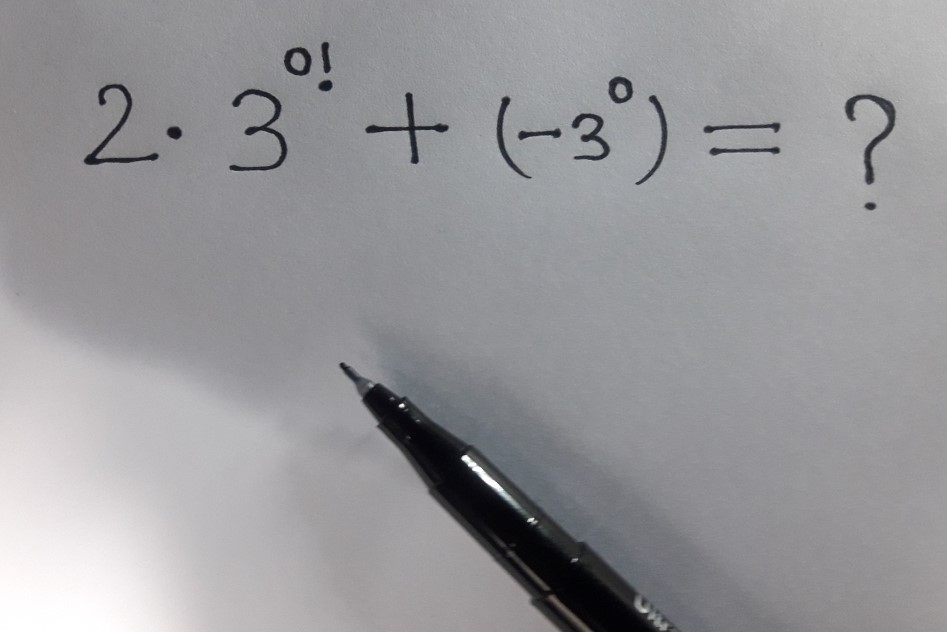 2 · 3^0! + (-3^0) = ?